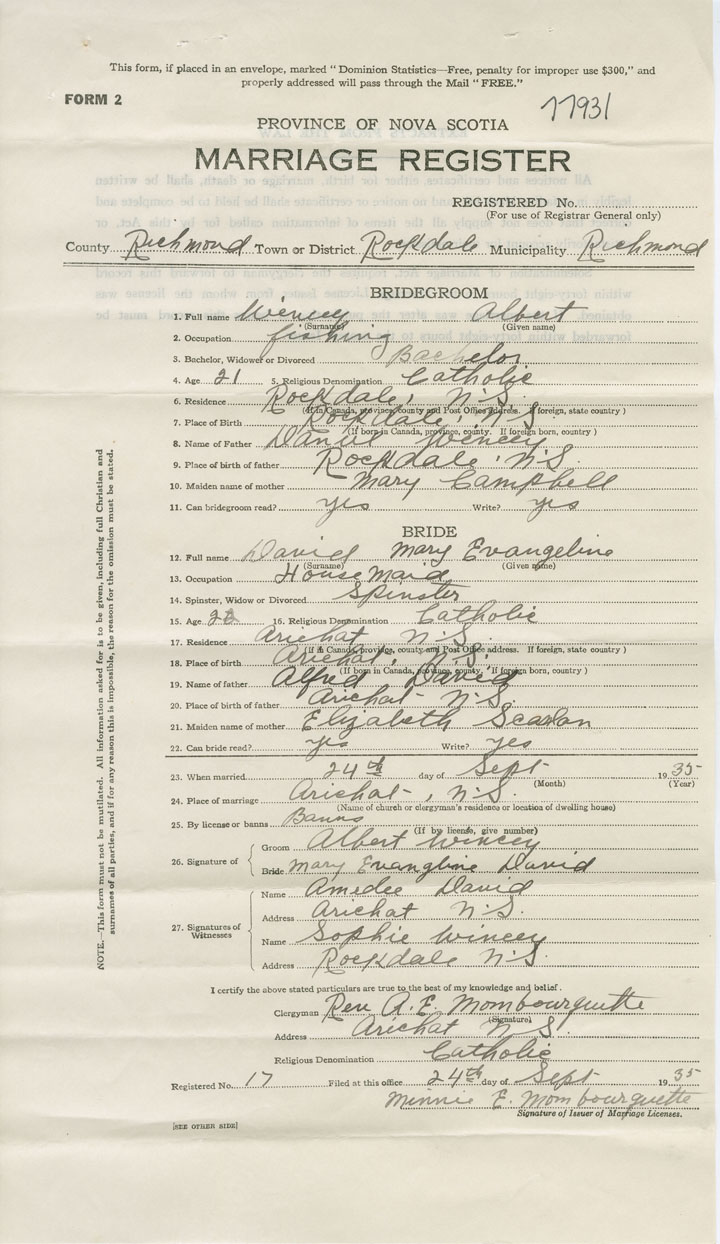 This form, if placed in an envelope, marked " Dominion Statistics—Free, penalty for improper use $300," and
properly addressed will pass through the Mail " FREE."
FORM 2
77931
PROVINCE OF NOVA SCOTIA
MARRIAGE REGISTER
REGISTERED No.
(For use of Registrar General only)
County Richmond Town or District Rockdale Municipality Richmond
BRIDEGROOM
1. Full name Wincey Albert
(Surname) (Given name)
2. Occupation fishing
3. Bachelor, Widower or Divorced Bachelor
4. Age 21 5. Religious Denomination Catholic
6. Residence Rockdale, N.S.
(If in Canada, province, county and Post Office address. If foreign, state country )
7. Place of Birth Rockdale, N.S
(If born in Canada, province, county. If foreign born, country )
8. Name of Father Daniel Wincey
9. Place of birth of father Rockdale, N.S.
10. Maiden name of mother Mary Campbell
11. Can bridegroom read? yes Write? yes
BRIDE
12. Full name David Mary Evangeline
(Surname) (Given name)
13. Occupation House Maid
14. Spinster, Widow or Divorced Spinster
15. Age 16. Religious Denomination Catholic
17. Residence Arichat N.S.
(If in Canada province, county and Post Office address. If foreign, state country )
18. Place of birth Arichat, N.S.
(If born in Canada, province, county, If foreign born, country )
19. Name of father Alfred David
20. Place of birth of father Arichat N.S.
21. Maiden name of mother Elizabeth Scanlan
22. Can bride read? yes Write? yes
23. When married 24th day of Sept 1935
(Month) (Year)
24. Place of marriage Arichat, N.S.
(Name of church or clergyman's residence or location of dwelling house)
25. By license or banns Banns
(If by license, give number)
26. Signature of
Groom Albert Wincey
Bride Mary Evangline David
27. Signatures of Witnesses
Name Amedee David
Address Arichat N.S.
Name Sophie Wincey
Address Rockdale N.S.
I certify the above stated particulars are true to the best of my knowledge and belief.
Clergyman Rev A. E. Mombourquette
(Signature)
Address Arichat N.S.
Religious Denomination Catholic
Registered No. 17 Filed at this office 24th day of Sept 1935
Minnie E. Mombourquette
Signature of Issuer of Marriage Licenses.
[SEE OTHER SIDE]
NOTE.—This form must not be mutilated. All information asked for is to be given, including full Christian and
surnames of all parties, and if for any reason this is impossible, the reason for the omission must be stated.